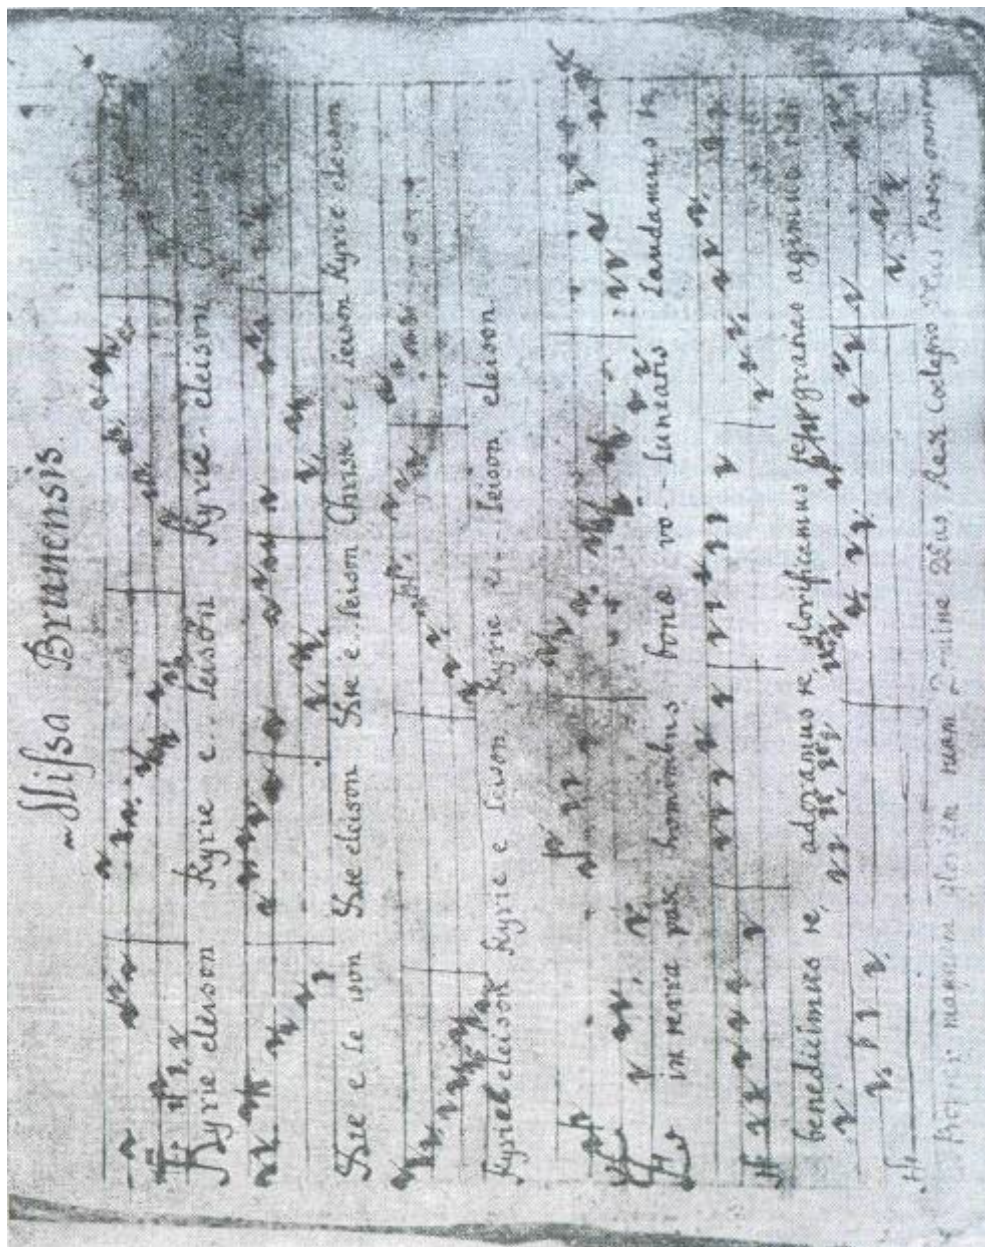 Missa Brunensis.
Kyrie eleison Kyrie e - leison Kyrie - eleison
Xste e le ison Xste eleison Xste e - leison Christe e leison Kyrie eleison
Kyrie eleison Kyrie e leison Kyrie e - - leison eleison
in terra pax hominibus bonæ vo - luntatis Laudamus te
benedicimus te, adoramus te glorificamus te gratias agimus tibi
magnam gloriam tuam Domine Deus Rex Coelestis Deus Pater omni